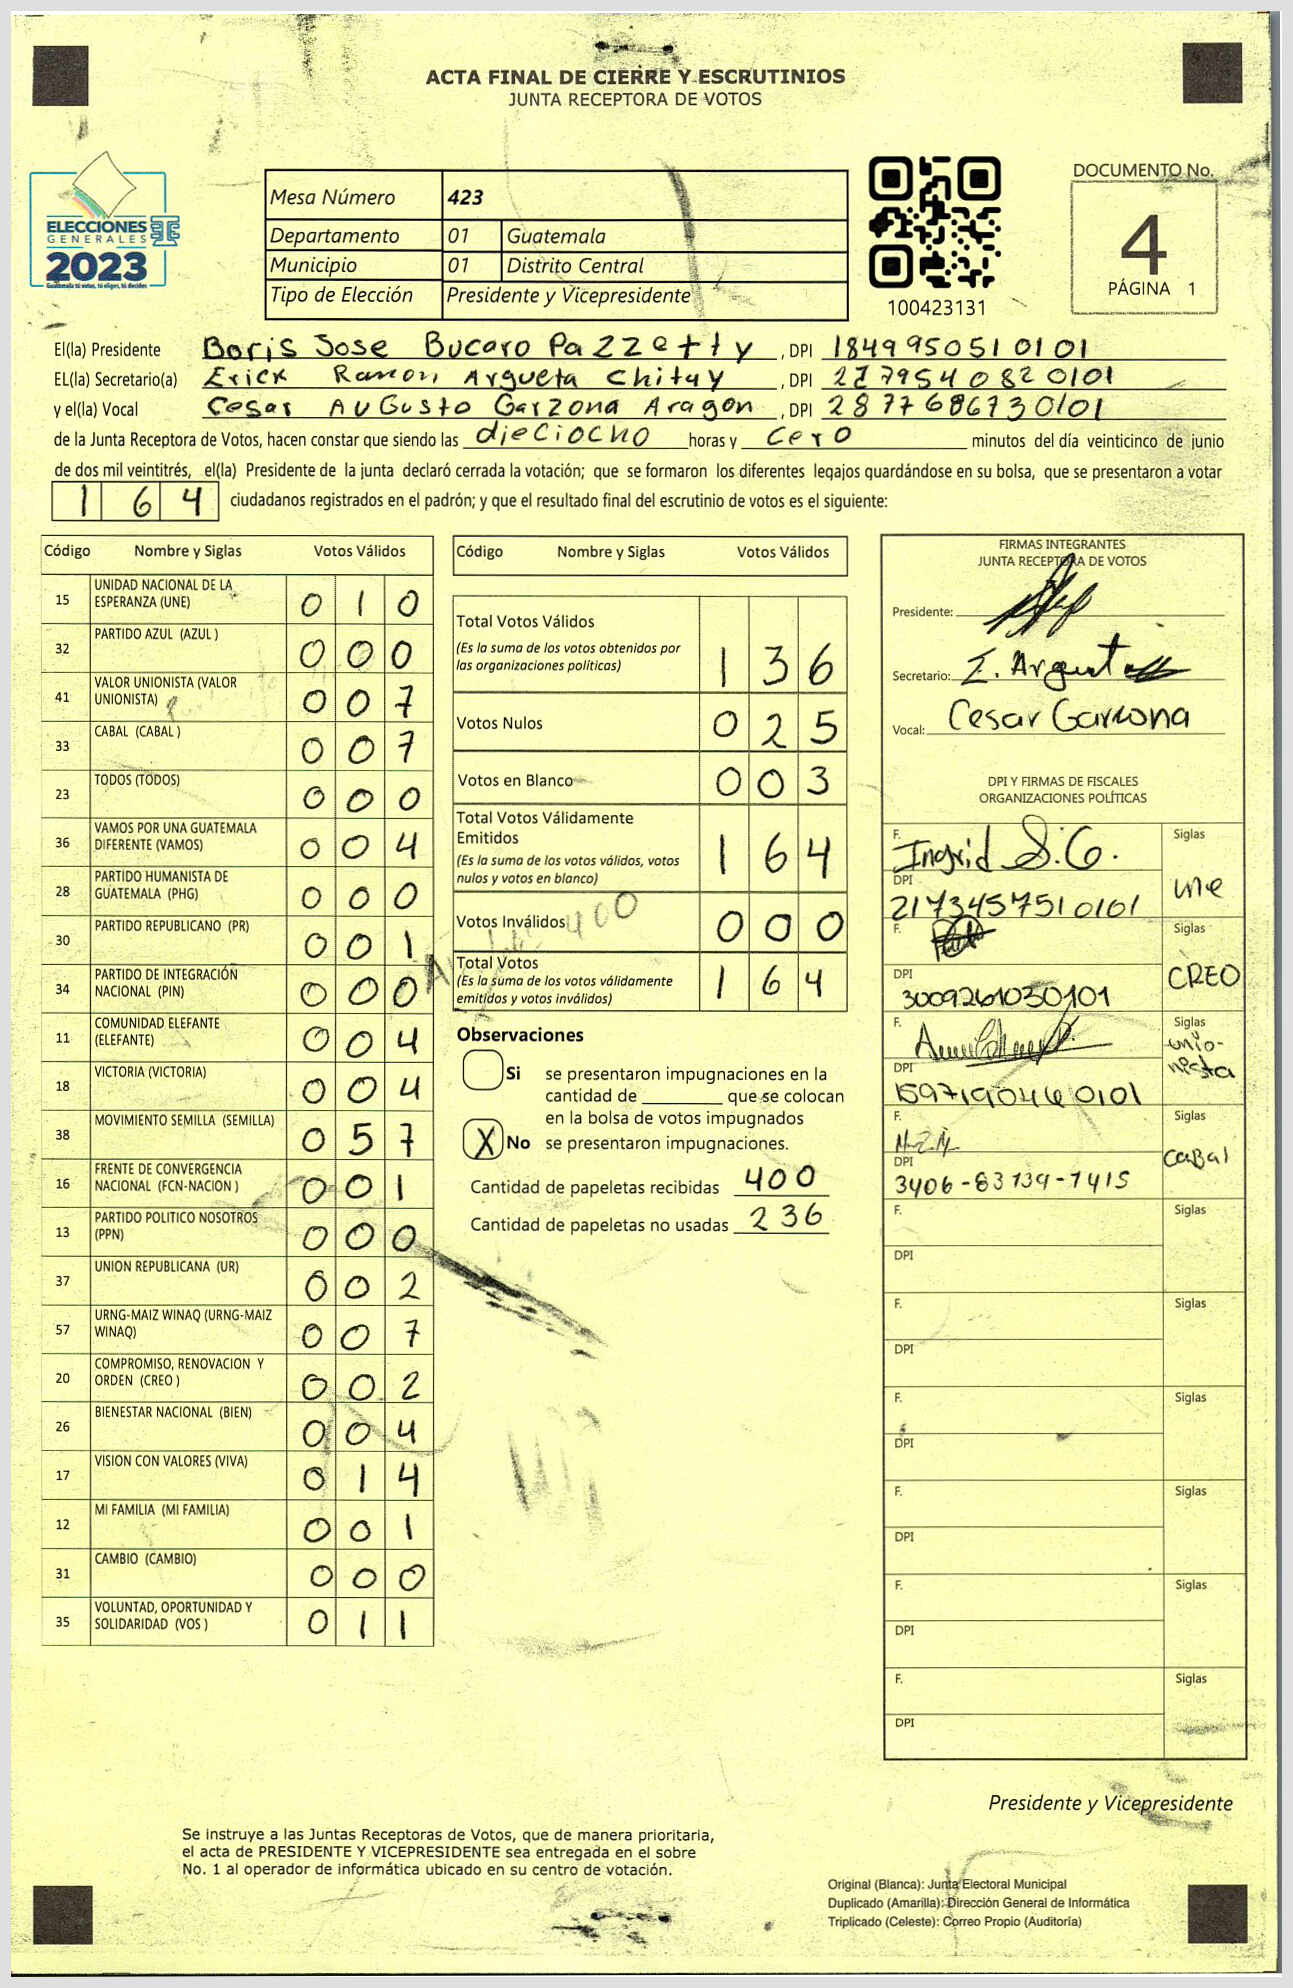 ACTA FINAL DE CIERRE Y ESCRUTINIOS
JUNTA RECEPTORA DE VOTOS
ELECCIONES
GENERALES
2023
Guatemala tú votas, tú eliges, tú decides
Mesa Número 423
Departamento 01 Guatemala
Municipio 01 Distrito Central
Tipo de Elección Presidente y Vicepresidente
100423131
DOCUMENTO No.
4
PÁGINA 1
El(la) Presidente Boris Jose Bucaro Pazzetty , DPI 1849950510101
EL(la) Secretario(a) Erick Ramon Argueta Chitay , DPI 2779540820101
y el(la) Vocal Cesar AuGusto Garzona Aragon , DPI 2877686730101
de la Junta Receptora de Votos, hacen constar que siendo las dieciocho horas y cero minutos del día veinticinco de junio
de dos mil veintitrés, el(la) Presidente de la junta declaró cerrada la votación; que se formaron los diferentes legajos guardándose en su bolsa, que se presentaron a votar
164 ciudadanos registrados en el padrón; y que el resultado final del escrutinio de votos es el siguiente:
Código Nombre y Siglas Votos Válidos
15 UNIDAD NACIONAL DE LA ESPERANZA (UNE) 010
32 PARTIDO AZUL (AZUL ) 000
41 VALOR UNIONISTA (VALOR UNIONISTA) 007
33 CABAL (CABAL ) 007
23 TODOS (TODOS) 000
36 VAMOS POR UNA GUATEMALA DIFERENTE (VAMOS) 004
28 PARTIDO HUMANISTA DE GUATEMALA (PHG) 000
30 PARTIDO REPUBLICANO (PR) 001
34 PARTIDO DE INTEGRACIÓN NACIONAL (PIN) 000
11 COMUNIDAD ELEFANTE (ELEFANTE) 004
18 VICTORIA (VICTORIA) 004
38 MOVIMIENTO SEMILLA (SEMILLA) 057
16 FRENTE DE CONVERGENCIA NACIONAL (FCN-NACION ) 001
13 PARTIDO POLITICO NOSOTROS (PPN) 000
37 UNION REPUBLICANA (UR) 002
57 URNG-MAIZ WINAQ (URNG-MAIZ WINAQ) 007
20 COMPROMISO, RENOVACION Y ORDEN (CREO ) 002
26 BIENESTAR NACIONAL (BIEN) 004
17 VISION CON VALORES (VIVA) 014
12 MI FAMILIA (MI FAMILIA) 001
31 CAMBIO (CAMBIO) 000
35 VOLUNTAD, OPORTUNIDAD Y SOLIDARIDAD (VOS ) 011
Código Nombre y Siglas Votos Válidos
Total Votos Válidos
(Es la suma de los votos obtenidos por
las organizaciones políticas) 136
Votos Nulos 025
Votos en Blanco 003
Total Votos Válidamente
Emitidos
(Es la suma de los votos válidos, votos
nulos y votos en blanco) 164
Votos Inválidos 000
400
Total Votos
(Es la suma de los votos válidamente
emitidos y votos inválidos) 164
Observaciones
Si se presentaron impugnaciones en la
cantidad de ________ que se colocan
en la bolsa de votos impugnados
X No se presentaron impugnaciones.
Cantidad de papeletas recibidas 400
Cantidad de papeletas no usadas 236
FIRMAS INTEGRANTES
JUNTA RECEPTORA DE VOTOS
Presidente:
Secretario: E. Argueta
Vocal: Cesar Garzona
DPI Y FIRMAS DE FISCALES
ORGANIZACIONES POLÍTICAS
F. Ingrid S.G. Siglas
DPI une
2173457510101
F. Siglas
DPI CREO
3009261030101
F. Siglas
DPI unio-
nista
1597190460101
F. M.Z.M. Siglas
DPI CABAL
3406-83739-7415
F. Siglas
DPI
F. Siglas
DPI
F. Siglas
DPI
F. Siglas
DPI
F. Siglas
DPI
F. Siglas
DPI
Presidente y Vicepresidente
Se instruye a las Juntas Receptoras de Votos, que de manera prioritaria,
el acta de PRESIDENTE Y VICEPRESIDENTE sea entregada en el sobre
No. 1 al operador de informática ubicado en su centro de votación.
Original (Blanca): Junta Electoral Municipal
Duplicado (Amarilla): Dirección General de Informática
Triplicado (Celeste): Correo Propio (Auditoría)